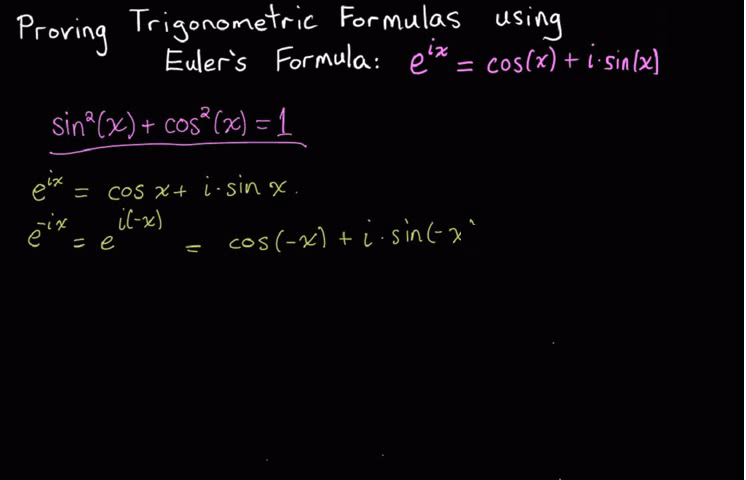 Proving Trigonometric Formulas using
Euler's Formula: e^{ix} = cos(x) + i·sin(x)
sin²(x) + cos²(x) = 1
e^{ix} = cos x + i·sin x.
e^{-ix} = e^{i(-x)} = cos(-x) + i·sin(-x